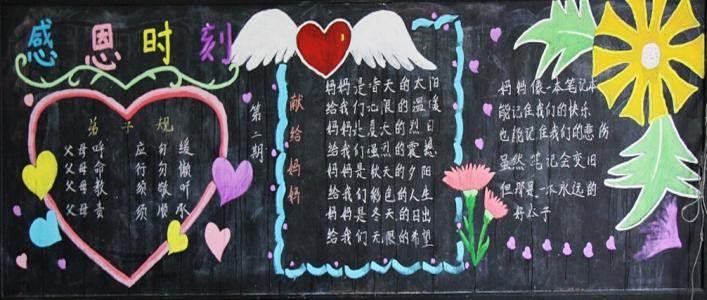 感恩时刻
弟子规
父母呼 应勿缓
父母命 行勿懒
父母教 须敬听
父母责 须顺承
第二期
献给妈妈
妈妈是春天的太阳
给我们无限的温暖
妈妈是夏天的烈日
给我们强烈的震撼
妈妈是秋天的夕阳
给我们彩色的人生
妈妈是冬天的日出
给我们无限的希望
妈妈像一本笔记本
能记住我们的快乐
也能记住我们的悲伤
虽然笔记会变旧
但那是一本永远的
好本子